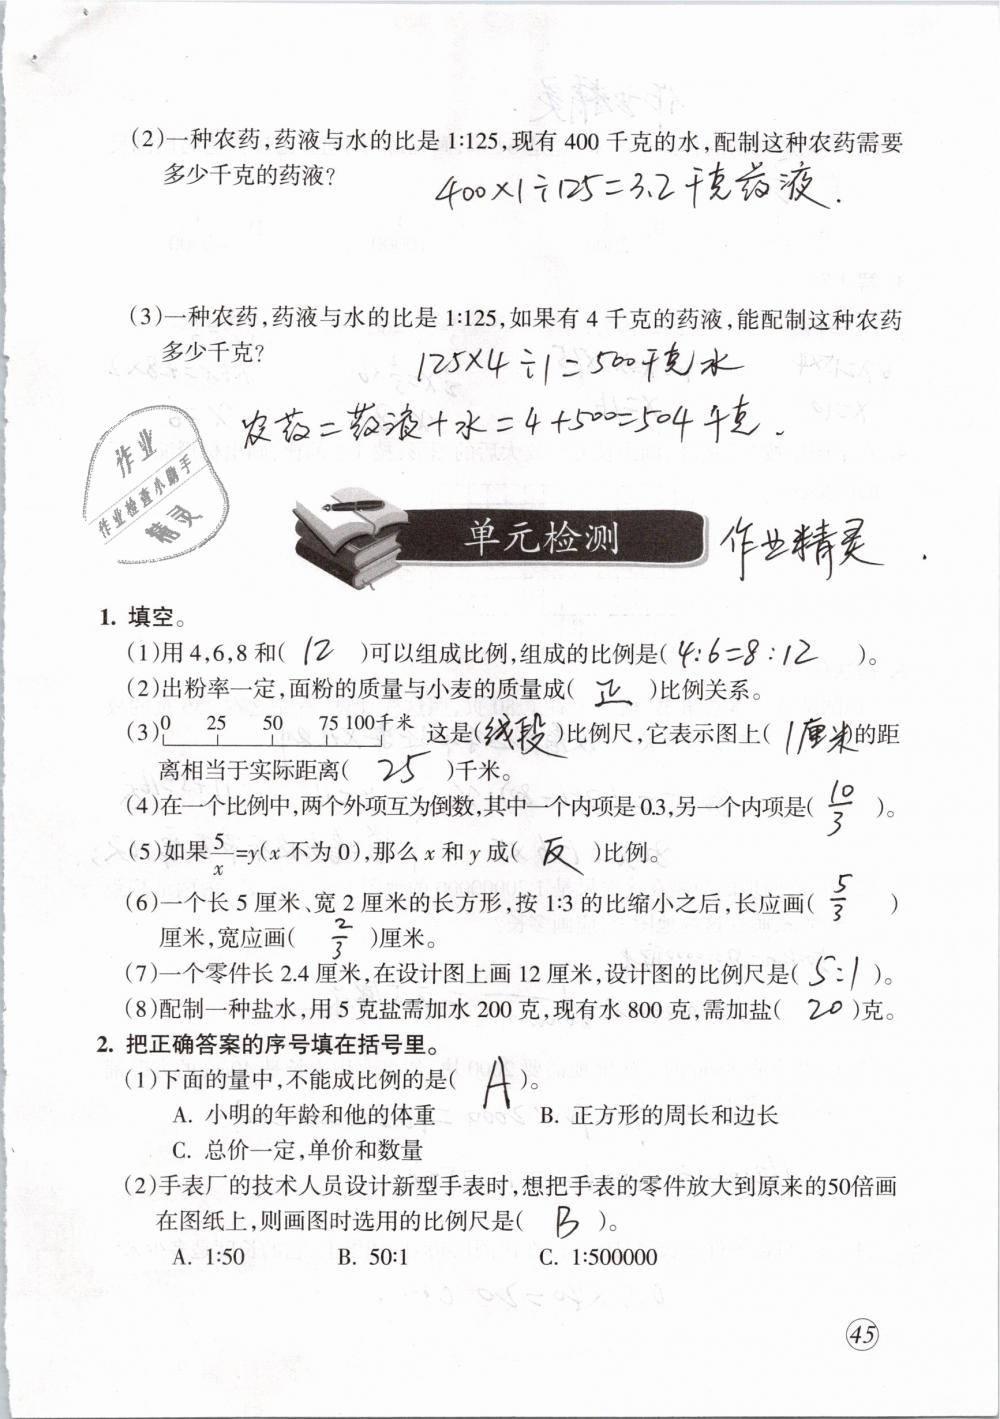 (2)一种农药,药液与水的比是 1∶125,现有 400 千克的水,配制这种农药需要
多少千克的药液?
400×1÷125=3.2千克药液.
(3)一种农药,药液与水的比是 1∶125,如果有 4 千克的药液,能配制这种农药
多少千克?
125×4÷1=500千克水
农药=药液+水=4+500=504千克.
作业
作业检查小助手
精灵
单元检测
作业精灵.
1. 填空。
(1)用 4,6,8 和( 12 )可以组成比例,组成的比例是( 4:6=8:12 )。
(2)出粉率一定,面粉的质量与小麦的质量成( 正 )比例关系。
(3) 0 25 50 75 100千米 这是(线段)比例尺,它表示图上( 1厘米的距
离相当于实际距离( 25 )千米。
(4)在一个比例中,两个外项互为倒数,其中一个内项是 0.3,另一个内项是( 10/3 )。
(5)如果5/x=y(x 不为 0),那么 x 和 y 成( 反 )比例。
(6)一个长 5 厘米、宽 2 厘米的长方形,按 1∶3 的比缩小之后,长应画( 5/3 )
厘米,宽应画( 2/3 )厘米。
(7)一个零件长 2.4 厘米,在设计图上画 12 厘米,设计图的比例尺是( 5:1 )。
(8)配制一种盐水,用 5 克盐需加水 200 克,现有水 800 克,需加盐( 20 )克。
2. 把正确答案的序号填在括号里。
(1)下面的量中,不能成比例的是( A )。
A. 小明的年龄和他的体重 B. 正方形的周长和边长
C. 总价一定,单价和数量
(2)手表厂的技术人员设计新型手表时,想把手表的零件放大到原来的50倍画
在图纸上,则画图时选用的比例尺是( B )。
A. 1∶50 B. 50∶1 C. 1∶500000
45